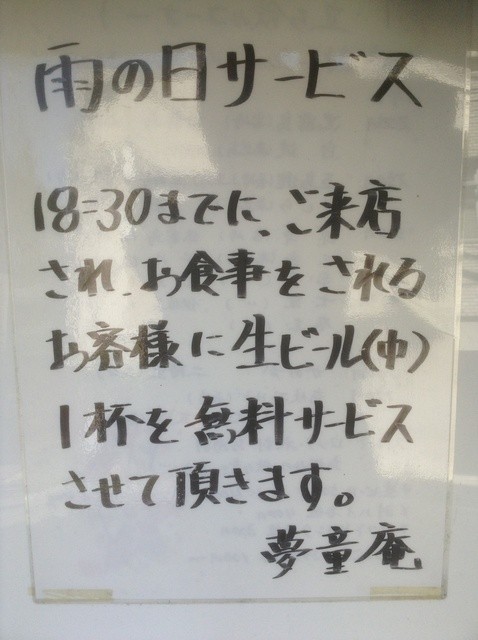 雨の日サービス
18:30までに、ご来店
され、お食事をされる
お客様に生ビール(中)
1杯を無料サービス
させて頂きます。
夢童庵